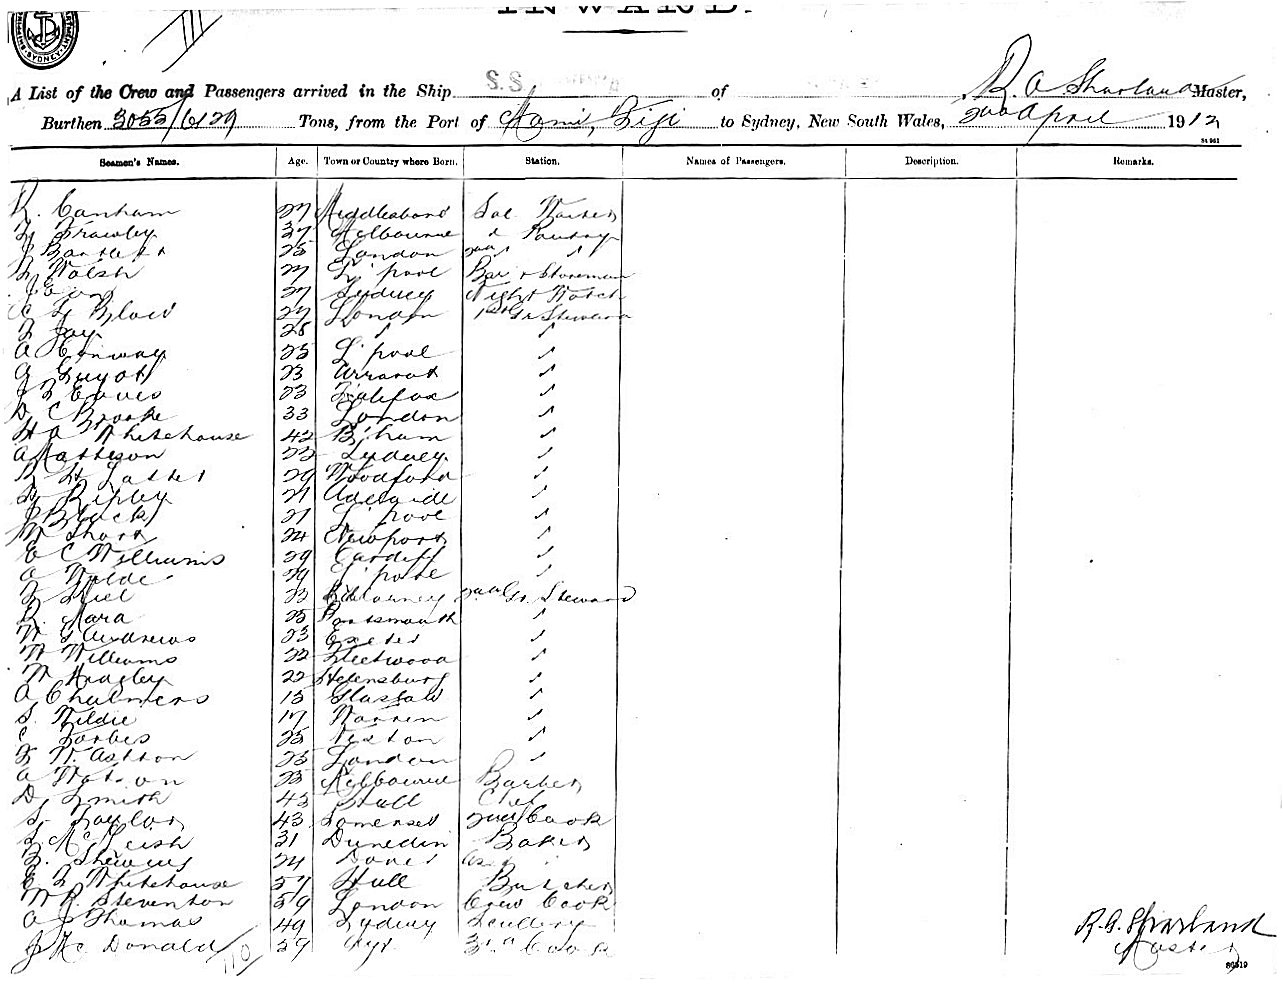 INWARD.
SYDNEY
III
A List of the Crew and Passengers arrived in the Ship S.S. of R. A. Sharland Master,
Burthen 3055/6129 Tons, from the Port of Fiji to Sydney, New South Wales, 2nd April 1912
Seamen's Names. Age. Town or Country where Born. Station. Names of Passengers. Description. Remarks.
R. Canham 27 Middlesboro Sal. Waiter
Frawley 37 Melbourne Pantry
J Bartlett 25 London 2nd
Walsh 27 L'pool Bar & Storeman
J 27 Sydney Night Watch
Blow 27 London 1st Gr Steward
Jay 28 "
A Conway 25 L'pool "
G Guyot 23 Ararat "
J Eaves 23 Halifax "
D C Brooke 33 London "
H A Whitehouse 42 B'ham "
A Matheson 23 Sydney "
29 Woodford "
Ripley 21 Adelaide "
J Black 21 L'pool "
W Short 24 Newport "
E C Williams 29 Cardiff "
A Wilde 29 L'pool "
23 Killarney 2nd Gr. Steward
R. Mara 25 Portsmouth "
W G Andrews 23 Exeter "
W Williams 22 Fleetwood "
W Hingley 22 Helensburg "
A Chalmers 18 Glasgow "
S. Wildie 17 Warren "
C Forbes 25 "
F W. Ashton 23 London "
A Watson 23 Melbourne Barber
D. Smith 43 Hull Chef
S. Taylor 43 Somerset 2nd Cook
McLeish 31 Dunedin Baker
24 Dover Asst "
E F Whitehouse 57 Hull Butcher
W R. Steventon 59 London Crew Cook
A J Thomas 49 Sydney Scullery
J McDonald 110 59 Ayr 3rd Cook
R. A. Sharland
Master